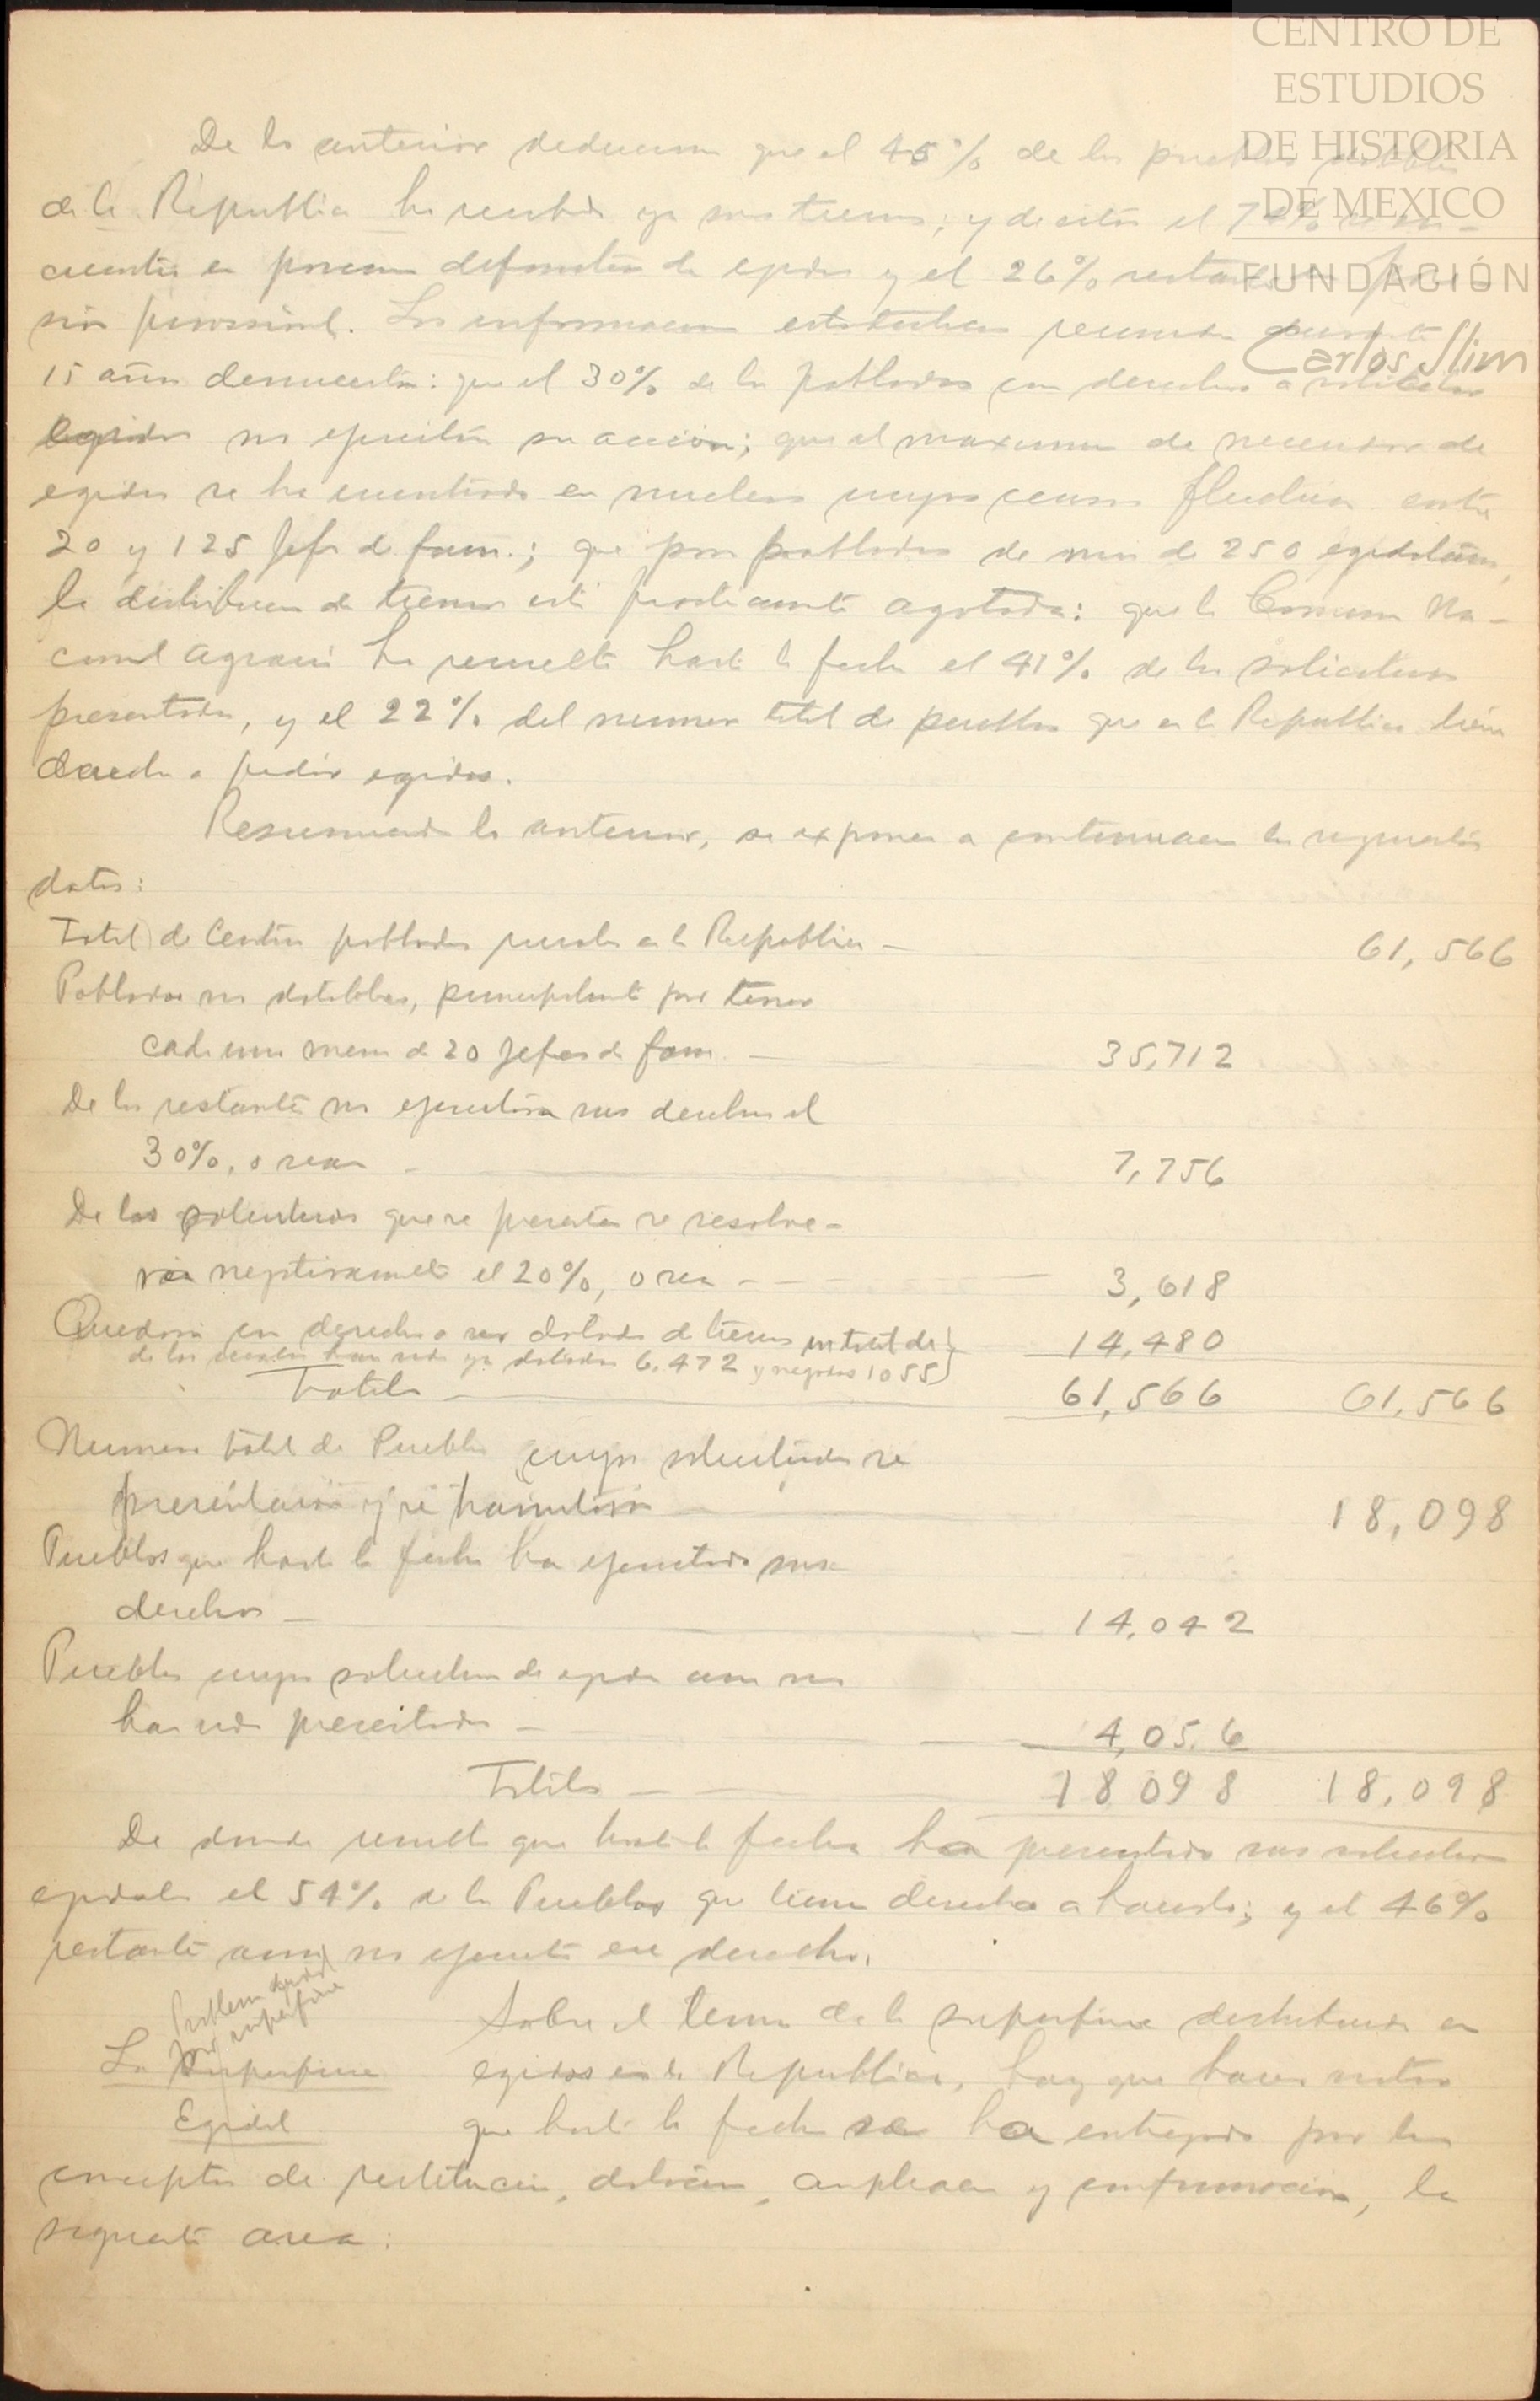 CENTRO DE
ESTUDIOS
DE HISTORIA
DE MEXICO
FUNDACIÓN
Carlos Slim
De lo anterior deducimos que el 45% de los pueblos dotables
de la Republica ha recibido ya sus tierras; y de estos el 74% se en-
cuentra en posesion definitiva de egidos y el 26% restante en pose-
sion provisional. Las informaciones estadisticas reunidas durante
15 años demuestran: que el 30% de los poblados con derecho a solicitar
egidos no ejercitan su accion; que el maximum de necesidad de
egidos se ha encontrado en nucleos cuyos censos fluctuan entre
20 y 125 jefes de fam.; que para poblados de mas de 250 egidatarios,
la distribucion de tierras está practicamente agotada: que la Comision Na-
cional Agraria ha resuelto hasta la fecha el 41% de las solicitudes
presentadas, y el 22% del numero total de pueblos que en la Republica tienen
derecho a pedir egidos.
Resumiendo lo anterior, se exponen a continuacion los siguientes
datos:
Total de Centros poblados rurales en la Republica — 61,566
Poblados no dotables, principalmente por tener
cada uno menos de 20 jefes de fam. — 35,712
De los restantes no ejercitan sus derechos el
30%, o sean — 7,756
De las solicitudes que se presentan se resolve-
rán negativamente el 20%, o sea — 3,618
Quedarán con derecho a ser dotados de tierras un total de 14,480
de los cuales han sido ya dotados 6,472 y negados 1055)
Totales — 61,566 61,566
Numero total de Pueblos cuyas solicitudes se
presentaran y se tramitaran — 18,098
Pueblos que hasta la fecha han ejercitado sus
derechos — 14,042
Pueblos cuyas solicitudes de egidos aun no
han sido presentadas — 4,056
Totales — 18098 18,098
De donde resulta que hasta la fecha han presentado sus solicitudes
egidales el 54% de los Pueblos que tienen derecho a hacerlo; y el 46%
restante aun no ejercita ese derecho.
Problema agrario
por superficie
La Superficie
Egidal
Sobre el tema de la superficie distribuida en
egidos en la Republica, hay que hacer notar
que hasta la fecha se ha entregado por los
conceptos de restitucion, dotacion, ampliacion y confirmacion, la
siguiente area: